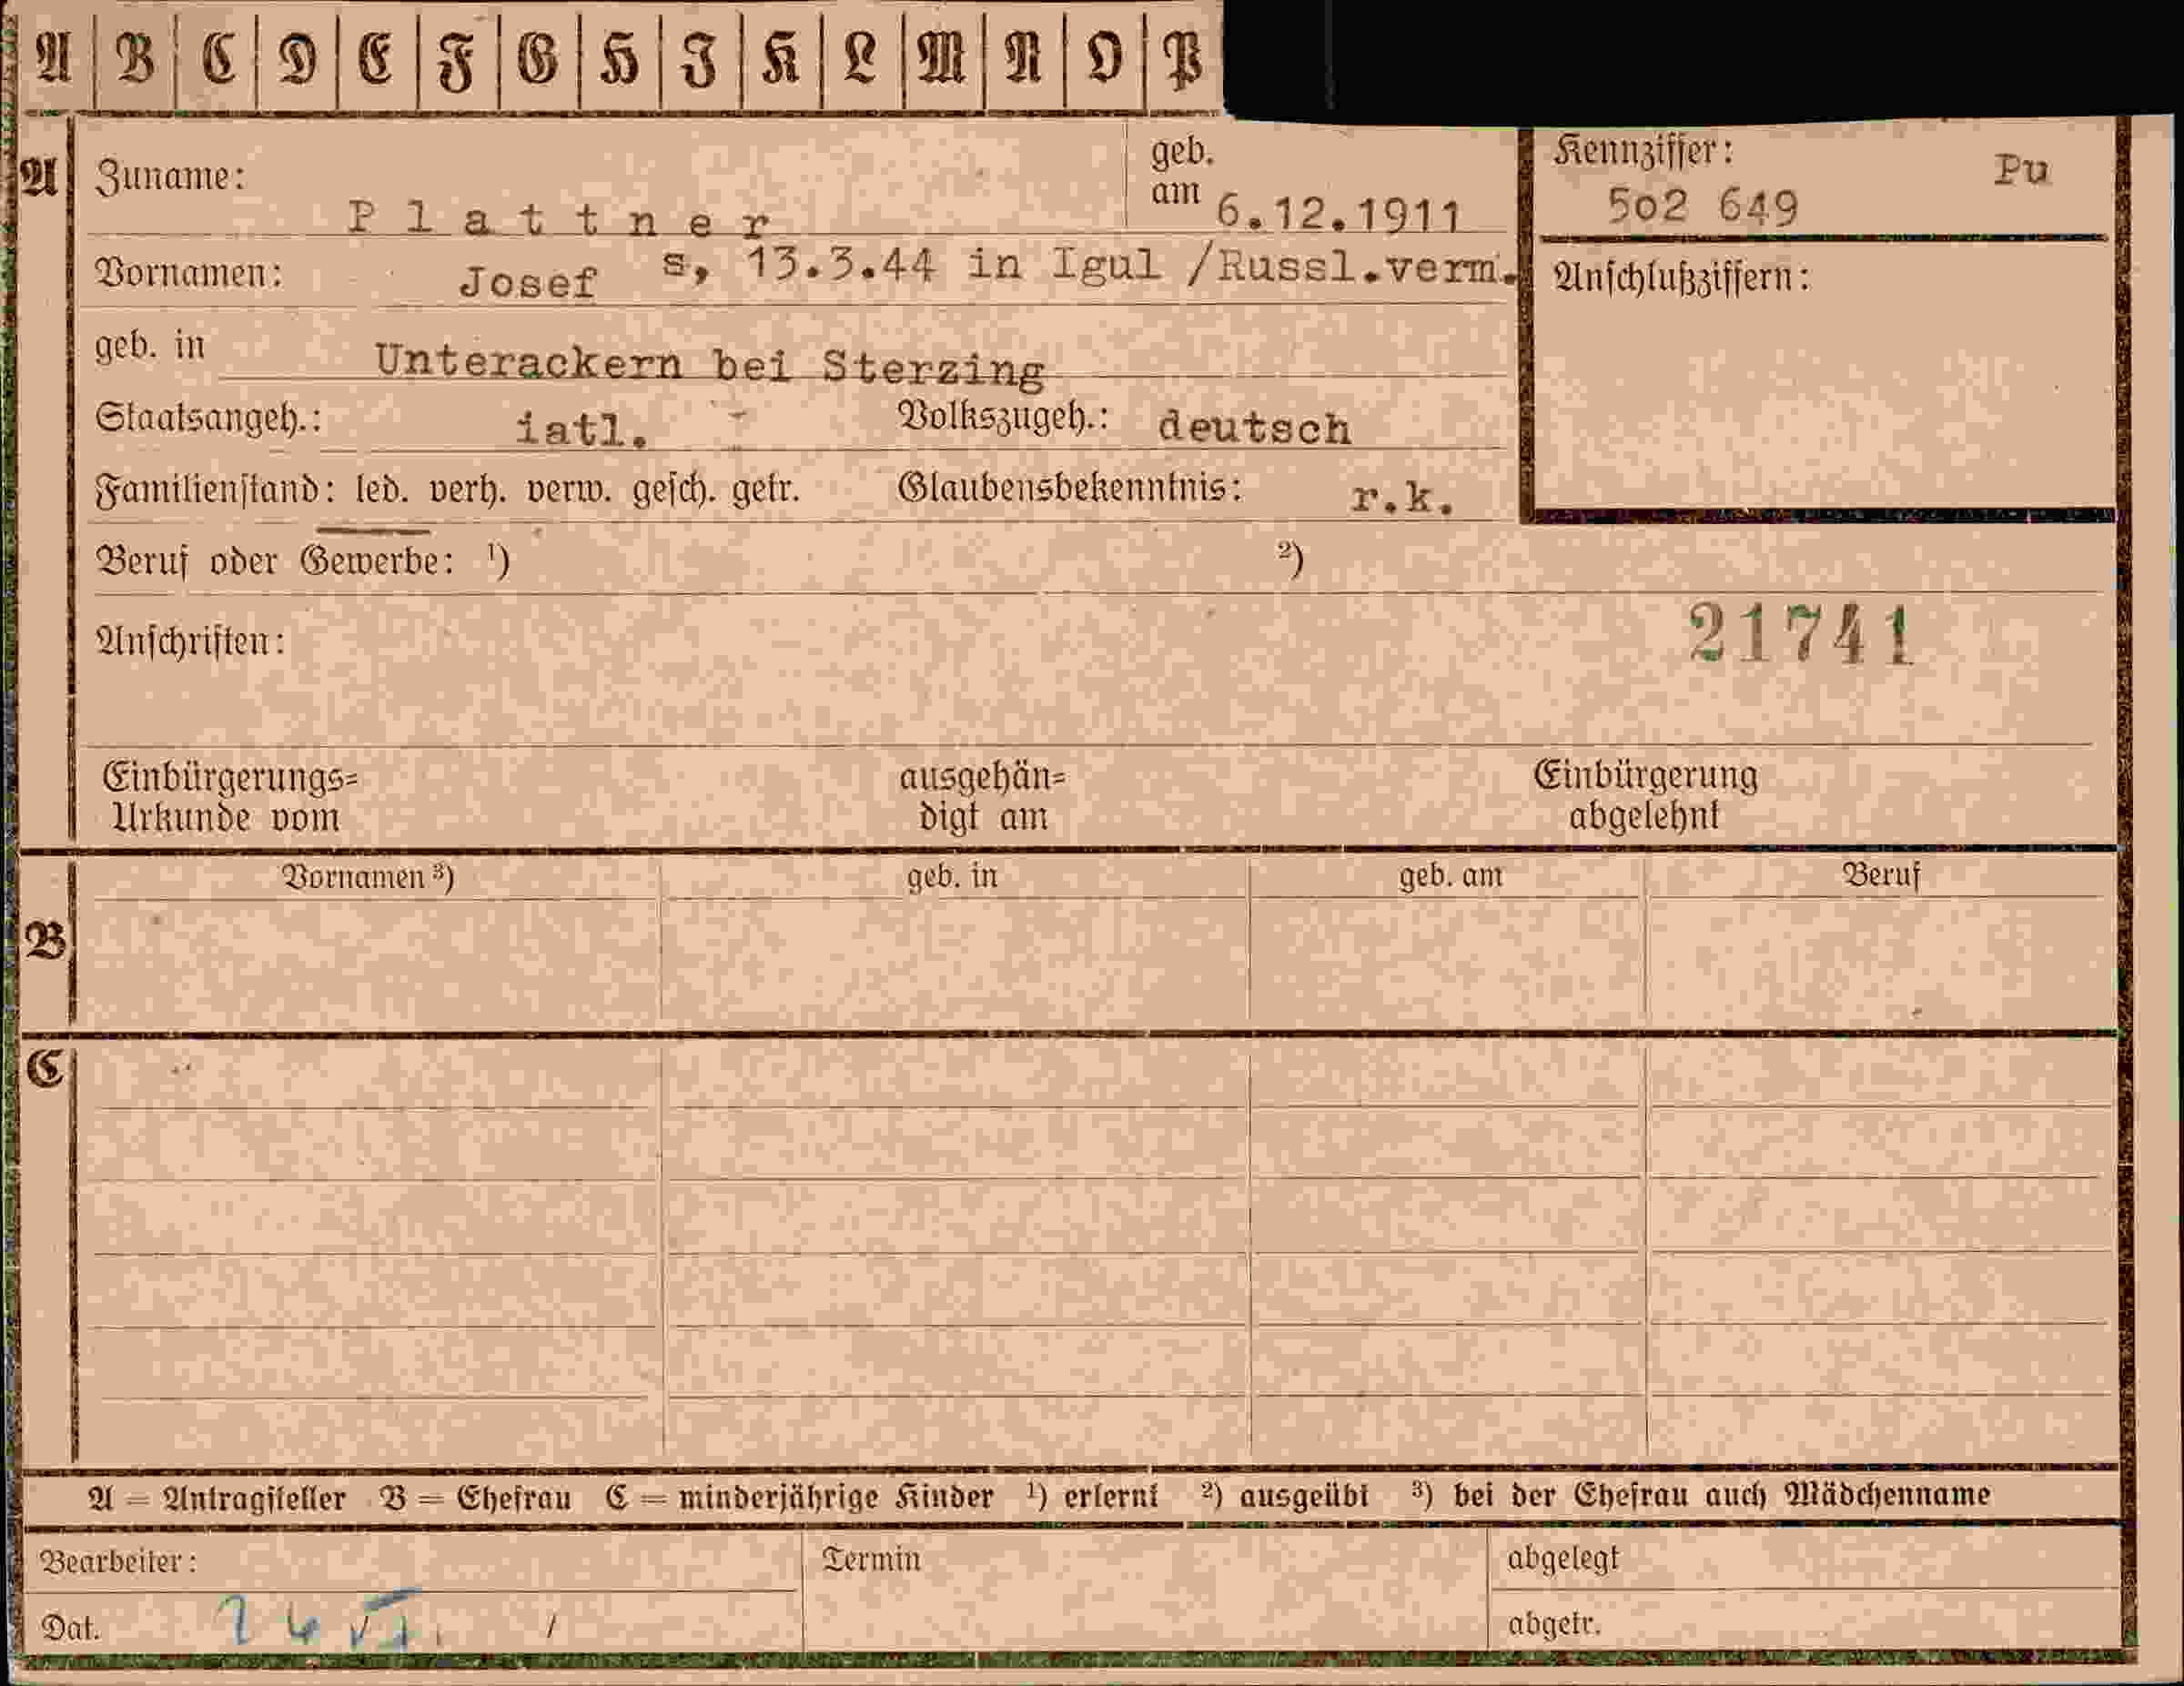 A B C D E F G H I K L M N O P
A Zuname: Plattner geb. am 6.12.1911 Kennziffer: 502 649 Pu
Vornamen: Josef s, 13.3.44 in Igul /Russl.verm. Anschlußziffern:
geb. in Unterackern bei Sterzing
Staatsangeh.: iatl. Volkszugeh.: deutsch
Familienstand: led. verh. verw. gesch. getr. Glaubensbekenntnis: r.k.
Beruf oder Gewerbe: ¹) ²)
Anschriften: 21741
Einbürgerungs= ausgehän= Einbürgerung
Urkunde vom digt am abgelehnt
Vornamen ³) geb. in geb. am Beruf
B
C
A = Antragsteller B = Ehefrau C = minderjährige Kinder ¹) erlernt ²) ausgeübt ³) bei der Ehefrau auch Mädchenname
Bearbeiter: Termin abgelegt
Dat. VI. / abgetr.